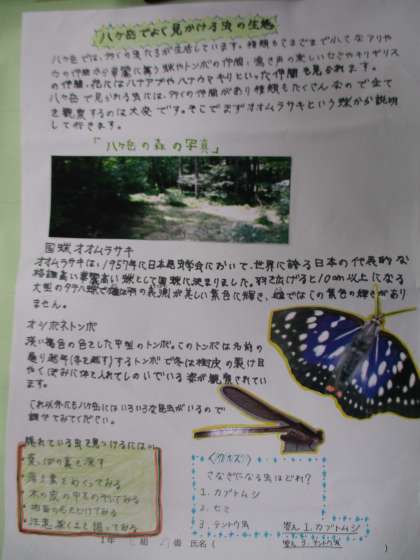 八ヶ岳でよく見かける虫の生態
八ヶ岳では、多くの虫たちが生活しています。種類もさまざまで小さなアリや
の仲間、他にはハナアブやハナカミキリといった仲間も見かけます。
八ヶ岳で見かれる虫には、多くの仲間があり種類もたくさんなので全て
を観察するのは大変です。そこでまずオオムラサキという蝶から説明
して行きます。
「八ヶ岳の森の写真」
国蝶オオムラサキ
オオムラサキは、1957年に日本昆虫学会において、世界に誇る日本の代表的な
格調高い豪華な蝶として国蝶に決まりました。羽を広げると10cm以上になる
大型のタテハ蝶で雄は羽の表側が美しい紫色に輝き、雌ではこの紫色の輝きがあり
ません。
オツネトンボ
淡い褐色の色をした中型のトンボ。このトンボは名前の
通り越年(冬を越す)するトンボで冬は樹皮の裂け目
やくぼみに体を入れてしのいでいる姿が観察されてい
ます。
これ以外にも八ヶ岳にはいろいろな昆虫がいるので
調べてみてください。
隠れている虫を見つけるには
・葉の裏を探す
・落ち葉をめくってみる
・木の皮の中をのぞいてみる
・地面の石をどけてみる
<クイズ>
さなぎになる虫はどれ?
1. カブトムシ
2. セミ
3. テントウ虫
答え 1. カブトムシ
答え 3. テントウ虫
1年 組 番 氏名( )